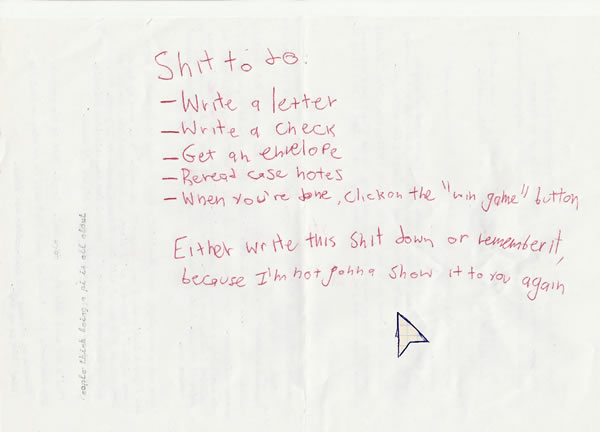 Shit to do:
- Write a letter
- Write a check
- Get an envelope
- Reread case notes
- When you're done, click on the "win game" button
Either write this shit down or remember it,
because I'm not gonna show it to you again
think being a pi is all about